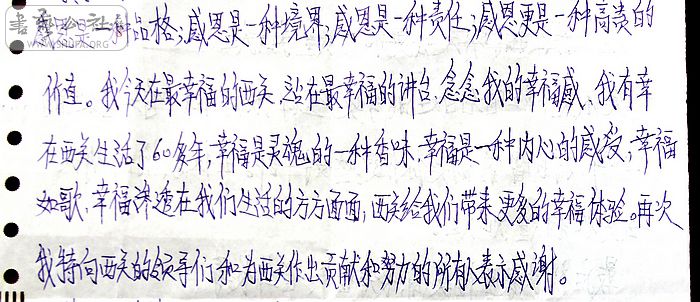 感恩是一种品格;感恩是一种境界;感恩是一种责任;感恩更是一种高贵的
价值。我今天在最幸福的西关,站在最幸福的讲台,念念我的幸福感、我有幸
在西关生活了60多年,幸福是灵魂的一种香味,幸福是一种内心的感受,幸福
如歌,幸福渗透在我们生活的方方面面,西关给我们带来更多的幸福体验。再次
我特向西关的领导们和为西关作出贡献和努力的所有人表示感谢。